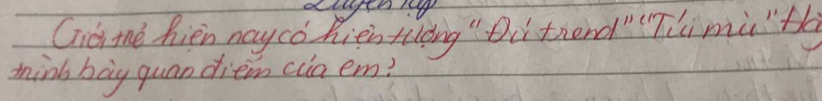 Luyện tập
Giới trẻ hiện nay có hiện tượng "Đú trend" "Tù mù" Hãy
trình bày quan điểm của em?